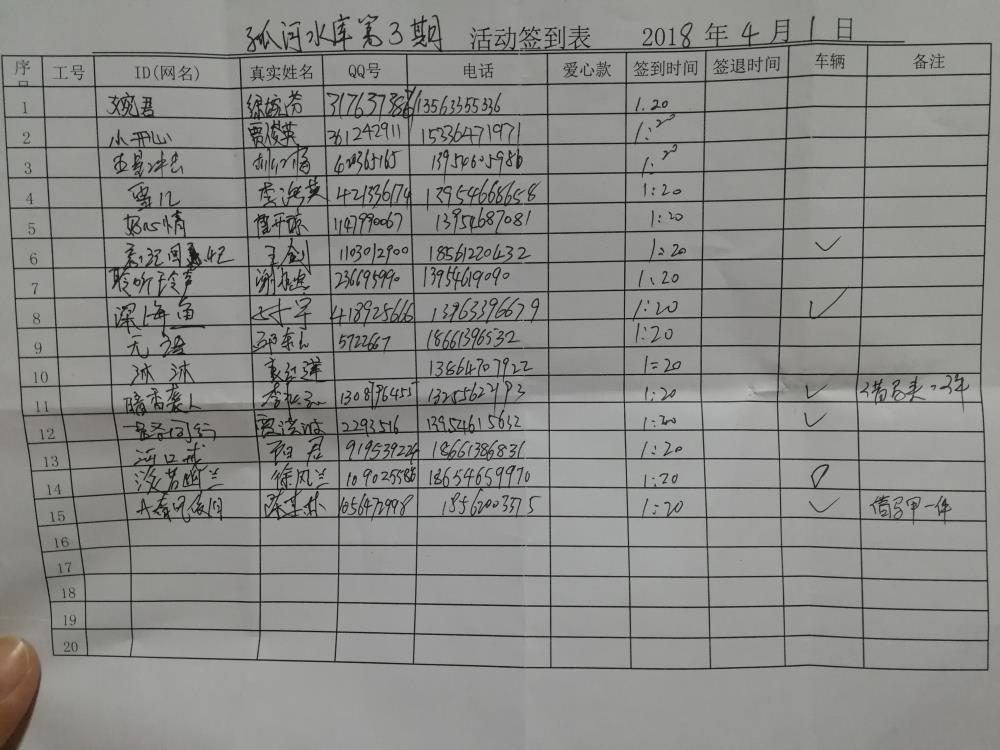 孤河水库第3期 活动签到表 2018年4月1日
序号 工号 ID(网名) 真实姓名 QQ号 电话 爱心款 签到时间 签退时间 车辆 备注
1 婉君 徐婉芳 13563355336 1:20
2 小开心 贾俊英 361242911 15336471971 1:20
3 420365165 13954605986 1:20
4 雪儿 421336174 13954668658 1:20
5 好心情 1147990067 13954687081 1:20
6 王剑 1103012900 18561220432 1:20 ✓
7 聆听铃声 236695990 13954619090 1:20
8 深海鱼 418925666 13963396679 1:20 ✓
9 无语 5722667 18661396532 1:20
10 冰冰 13864707922 1:20
11 暗香袭人 1308796455 13255622193 1:20 ✓
12 一路同行 2293516 13954615632 1:20 ✓
13 919539226 18661386831 1:20
14 淡若幽兰 徐风兰 1090255586 18654659970 1:20
15 1056472998 18562003375 1:20 ✓ 借马甲一件
16
17
18
19
20